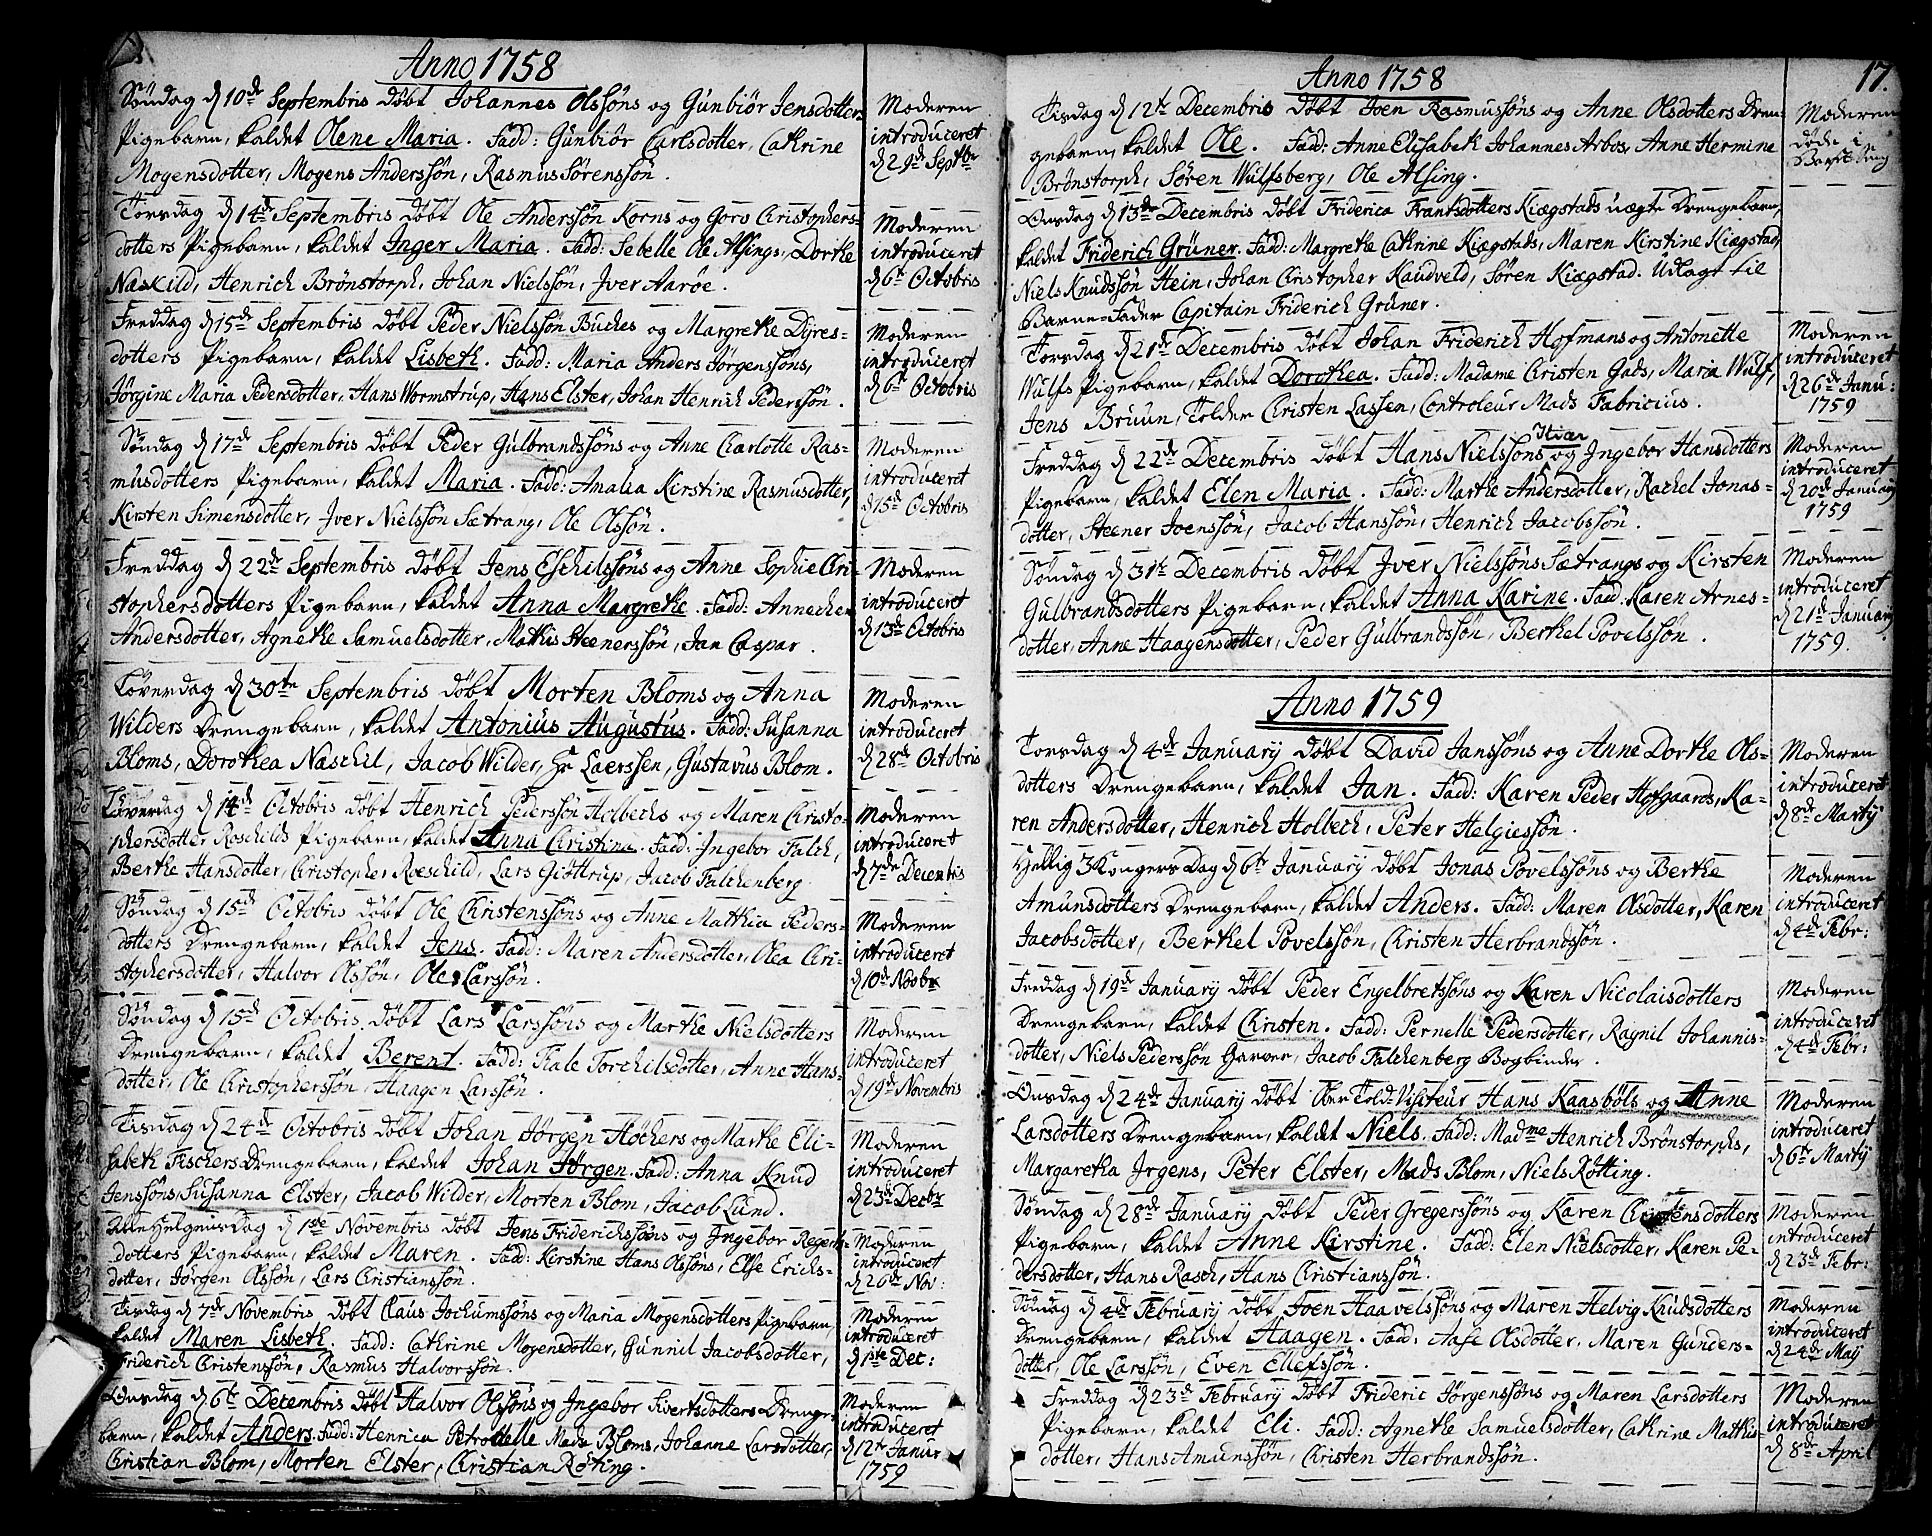 Anno 1758
Søndag d 10de Septembris døbt Johannes Olssøns og Gunbiør Jensdotters
Pigebarn, kaldet Olene Maria. Fadd: Gunbiør Carlsdotter, Cathrine
Mogensdotter, Mogens Anderssøn, Rasmus Sørenssøn.
Moderen
introduceret
d 29de Septbr
Torsdag d 14de Septembris døbt Ole Anderssøn Korns og Gors Christophers-
dotters Pigebarn, kaldet Inger Maria. Fadd: Sebelle Ole Alsings, Dorthe
Naskild, Henrich Brønstorph, Johan Nielssøn, Jver Aarøe.
Moderen
introduceret
d 6te Octobris
Freddag d 15de Septembris døbt Peder Nielssøn Buches og Margrethe Dyres-
dotters Pigebarn, kaldet Lisbeth. Fadd: Maria Anders Jørgenssøns,
Jørgine Maria Pedersdotter, Hans Wormstrup, Hans Elster, Johan Henrich Pederssøn.
Moderen
introduceret
d 6te Octobris
Søndag d 17de Septembris døbt Peder Gulbrandssøns og Anne Charlotte Ras-
musdotters Pigebarn, kaldet Maria. Fadd: Amalia Kirstine Rasmusdotter,
Kirsten Simensdotter, Jver Nielssøn Sætrang, Ole Olssøn.
Moderen
introduceret
d 15de Octobris
Freddag d 22de Septembris døbt Jens Eschilssøns og Anne Sophie Chri-
stophersdotters Pigebarn, kaldet Anna Margrethe. Fadd: Annechen
Andersdotter, Agnethe Samuelsdotter, Mathis Steenerssøn, Jan Caspar.
Moderen
introduceret
d 13de Octobris
Løverdag d 30te Septembris døbt Morten Bloms og Anna
Wilders Drengebarn, kaldet Antonius Augustus. Fadd: Susanna
Bloms, Dorothea Naschil, Jacob Wilder, Hr Laerssen, Gustavus Blom.
Moderen
introduceret
d 28de Octobris
Løverdag d 14de Octobris døbt Henrich Pederssøn Holbechs og Maren Christo-
phersdotter Roschilds Pigebarn, kaldet Anna Christina. Fadd: Ingebor Falch,
Berthe Hansdotter, Christopher Roeschild, Lars Giøttrup, Jacob Falchenberg.
Moderen
introduceret
d 7de Decembris
Søndag d 15de Octobris døbt Ole Christenssøns og Anne Matthia Peders-
dotters Drengebarn, kaldet Jens. Fadd: Maren Andersdotter, Olea Chri-
stophersdotter, Halvor Olssøn, Ole Larssøn.
Moderen
introduceret
d 10de Novbr
Søndag d 15de Octobris døbt Lars Larssøns og Marthe Nielsdotters
Drengebarn, kaldet Berent. Fadd: Kale Torchilsdotter, Anne Hans-
dotter, Ole Christopherssøn, Haagen Larssøn.
Moderen
introduceret
d 19de Novembris
Tisdag d 24de Octobris døbt Johan Jørgen Høchers og Marthe Eli-
sabeth Fischers Drengebarn, kaldet Johan Jørgen. Fadd: Anna Knud
Jenssøns, Susanna Elster, Jacob Wilder, Morten Blom, Jacob Lund.
Moderen
introduceret
d 23de Decbr
Allehelgensdag d 1ste Novembris døbt Jens Friderichssøns og Ingebor Regert-
dotters Pigebarn, kaldet Maren. Fadd: Kirstine Hans Olssøns, Else Erichs-
dotter, Jørgen Olssøn, Lars Christianssøn.
Moderen
introduceret
d 26de Nov:
Tisdag d 7de Novembris døbt Claus Jochumssøns og Maria Mogensdotters Pigebarn,
kaldet Maren Lisbeth. Fadd: Cathrine Mogensdotter, Gunnil Jacobsdotter,
Friderich Christenssøn, Rasmus Halvorssøn.
Moderen
introduceret
d 1ste Dec:
Onsdag d 6te Decembris døbt Halvor Olssøns og Ingebor Sivertsdotters Drenge-
barn, kaldet Anders. Fadd: Henrica Petronelle Mads Bloms, Johanne Larsdotter,
Christian Blom, Morten Elster, Christian Røting.
Moderen
introduceret
d 12te Januar
1759
17.
Anno 1758
Tisdag d 12te Decembris døbt Joen Rasmussøns og Anne Olsdotters Dren-
gebarn, kaldet Ole. Fadd: Anne Elisabeth Johannes Arbos, Anne Hermine
Brønstorph, Søren Wulfsberg, Ole Alsing.
Moderen
døde i
Barselseng
Onsdag d 13de Decembris døbt Friderica Frantsdotters Kiægstads uægte Drengebarn,
kaldet Friderich Grüner. Fadd: Margrethe Cathrine Kiægstads, Maren Kirstine Kiægstad,
Niels Knudssøn Hein, Johan Christopher Kaudveld, Søren Kiægstad. Udlagt til
Barne-Fader Capitain Friderich Grüner.
Torsdag d 21de Decembris døbt Johan Friderich Hofmans og Antonette
Wulfs Pigebarn, kaldet Dorothea. Fadd: Madame Christen Gads, Maria Wulf,
Jens Bruun, Tolder Christen Lassen, Controleur Mads Fabricius.
Moderen
introduceret
d 26de Janu:
1759
Freddag d 22de Decembris døbt Hans Nielssøns Hiær og Ingebor Hansdotters
Pigebarn, kaldet Elen Maria. Fadd: Marthe Andersdotter, Rachel Jonas-
dotter, Steener Joenssøn, Jacob Hanssøn, Henrich Jacobssøn.
Moderen
introduceret
d 20de January
1759
Søndag d 31te Decembris døbt Jver Nielssøns Sætrangs og Kirsten
Gulbrandsdotters Pigebarn, kaldet Anna Karine. Fadd: Karen Arnes-
dotter, Anne Haagensdotter, Peder Gulbrandssøn, Berthel Povelssøn.
Moderen
introduceret
d 21de January
1759.
Anno 1759
Torsdag d 4de January døbt David Janssøns og Anne Dorthe Ols-
dotters Drengebarn, kaldet Jan. Fadd: Karen Peder Hofgaards, Ka-
ren Andersdotter, Henrich Holbech, Peter Helgiessøn.
Moderen
introduceret
d 8de Martij
Hellig 3 Kongers Dag d 6te January døbt Jonas Povelssøns og Berthe
Amunsdotters Drengebarn, kaldet Anders. Fadd: Maren Olsdotter, Karen
Jacobsdotter, Berthel Povelssøn, Christen Herbrandssøn.
Moderen
introduceret
d 4de Febr:
Freddag d 19de January døbt Peder Engelbretssøns og Karen Nicolaisdotters
Drengebarn, kaldet Christen. Fadd: Pernelle Pedersdotter, Ragnil Johannis-
dotter, Niels Pederssøn Garver, Jacob Falchenberg Bogbinder.
Moderen
introduceret
d 4de Febr:
Onsdag d 24de January døbt Ober Told-Visiteur Hans Kaasbøls og Anne
Larsdotters Drengebarn, kaldet Niels. Fadd: Madme Henrich Brønstorphs,
Margaretha Jrgens, Peter Elster, Mads Blom, Niels Røtting.
Moderen
introduceret
d 6te Martij
Søndag d 28de January døbt Peder Gregerssøns og Karen Christensdotters
Pigebarn, kaldet Anne Kirstine. Fadd: Elen Nielsdotter, Karen Pe-
dersdotter, Hans Rasch, Hans Christianssøn.
Moderen
introduceret
d 23de Febr:
Søndag d 4de February døbt Joen Haavelssøns og Maren Helvig Knudsdotters
Drengebarn, kaldet Haagen. Fadd: Aase Olsdotter, Maren Gunders-
dotter, Ole Larssøn, Even Ellefssøn.
Moderen
introduceret
d 24de Maij
Freddag d 23de February døbt Frideric Jørgenssøns og Maren Larsdotters
Pigebarn, kaldet Eli. Fadd: Agnethe Samuelsdotter, Cathrine Mathis-
dotter, Hans Amunssøn, Christen Herbrandssøn.
Moderen
introduceret
d 8de April